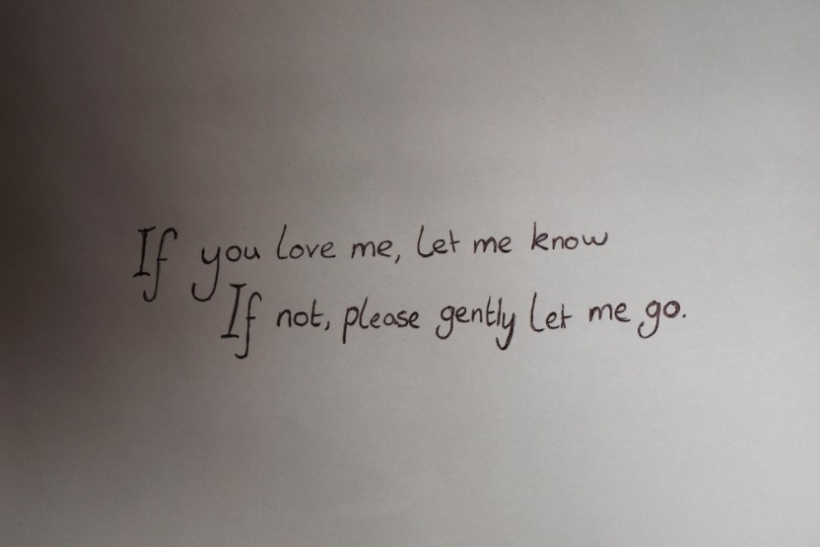 If you love me, let me know
If not, please gently let me go.